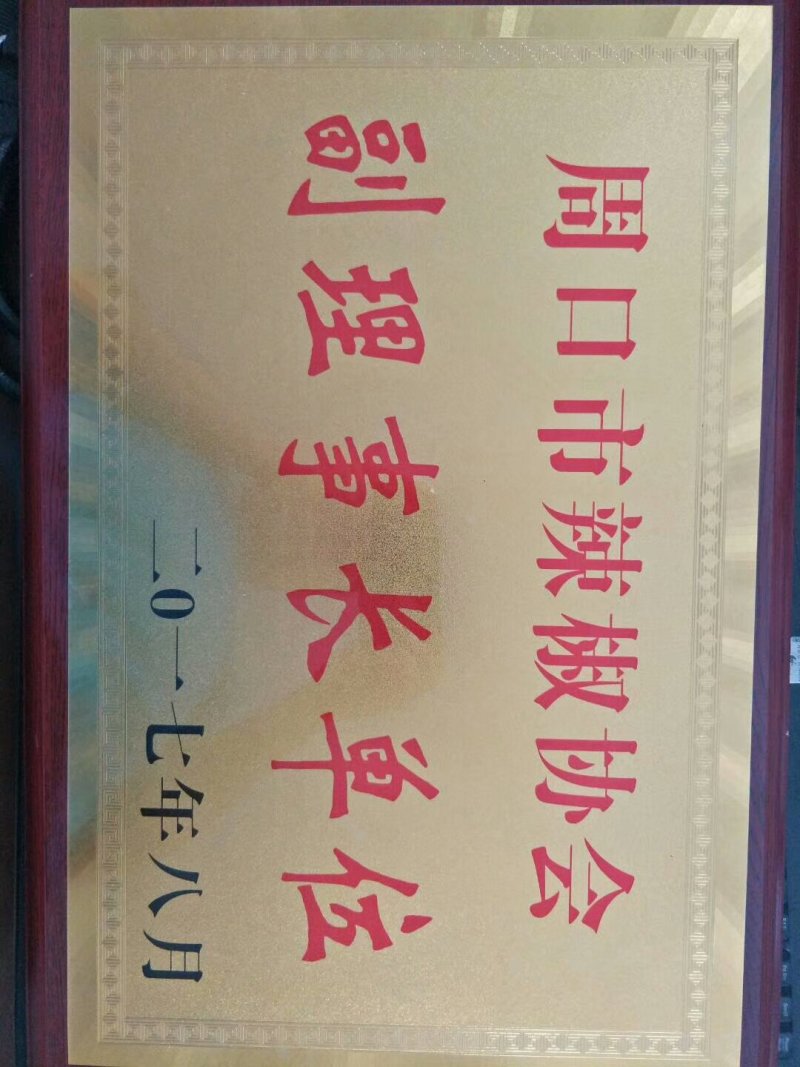 周口市辣椒协会
副理事长单位
二0一七年八月